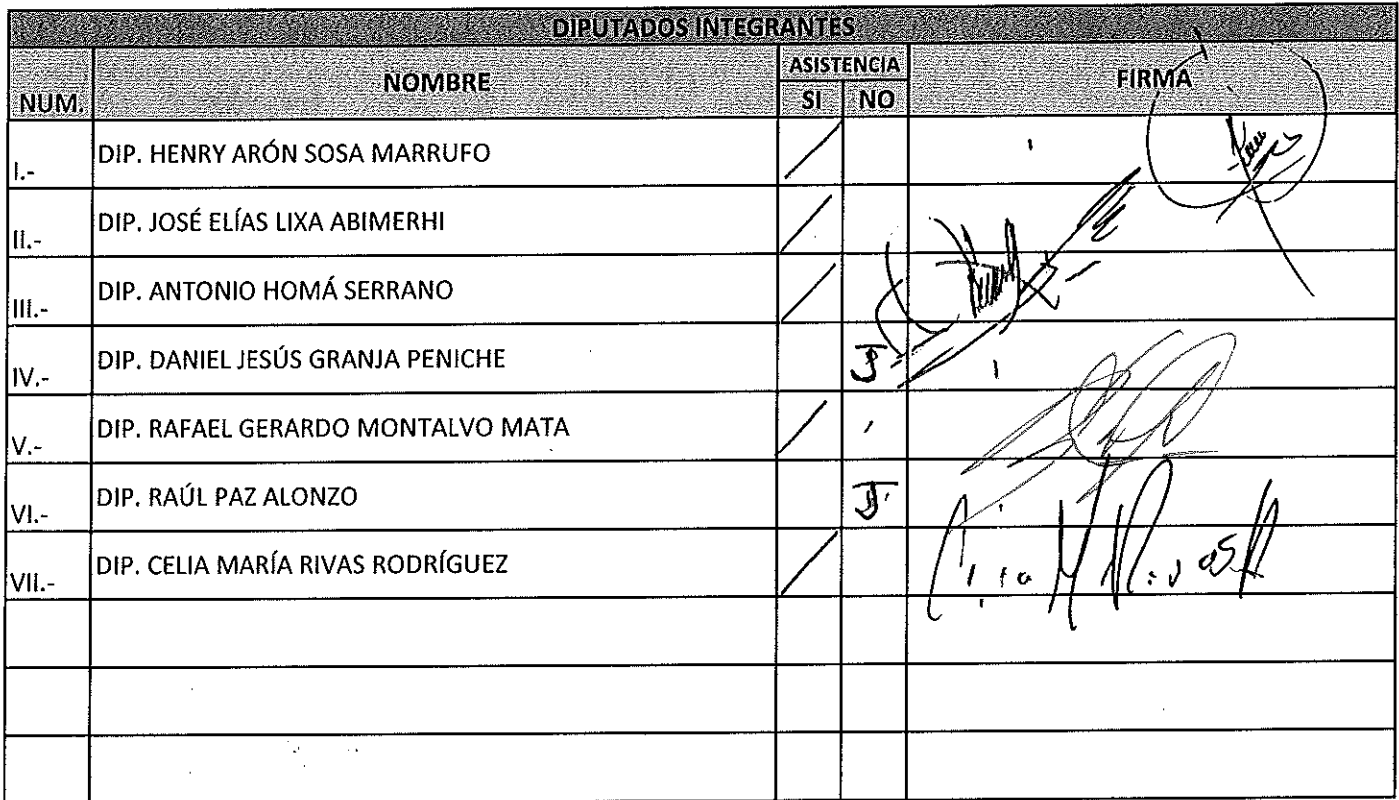 DIPUTADOS INTEGRANTES
NUM. NOMBRE ASISTENCIA FIRMA
SI NO
I.- DIP. HENRY ARÓN SOSA MARRUFO
II.- DIP. JOSÉ ELÍAS LIXA ABIMERHI
III.- DIP. ANTONIO HOMÁ SERRANO
IV.- DIP. DANIEL JESÚS GRANJA PENICHE J
V.- DIP. RAFAEL GERARDO MONTALVO MATA
VI.- DIP. RAÚL PAZ ALONZO J
VII.- DIP. CELIA MARÍA RIVAS RODRÍGUEZ Celia M Rivas R